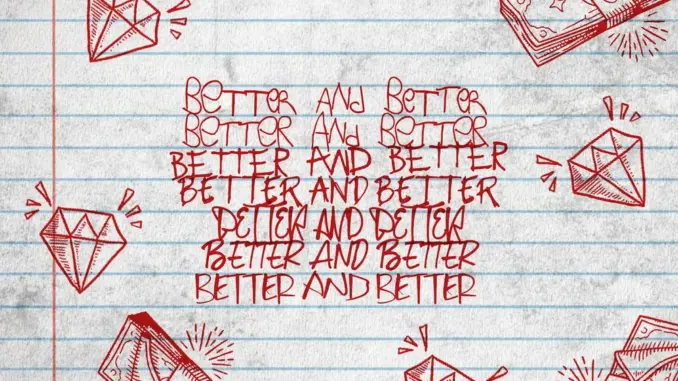 BETTER AND BETTER
BETTER AND BETTER
BETTER AND BETTER
BETTER AND BETTER
BETTER AND BETTER
BETTER AND BETTER
BETTER AND BETTER